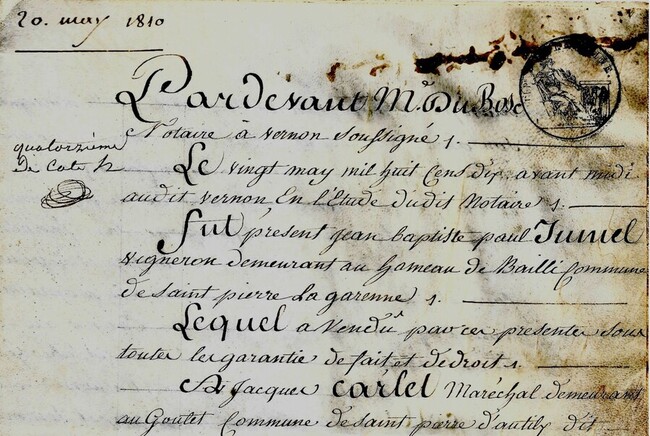 20. may 1810
Pardevant Me. Du Bosc
Notaire à Vernon Soussigné
quatorzième
de cote h
Le vingt may mil huit Cens dix, avant midi
audit vernon En l'Etude dudit Notaire
fut présent jean baptiste paul
vigneron demeurant au hameau de Bailli Commune
de saint pierre La garenne
Lequel a Vendu par ces presentes Sous
toutes les garanties de fait et de droit
A Jacques Carlet Maréchal demeurant
au Goulet Commune de saint pierre d'autils dit